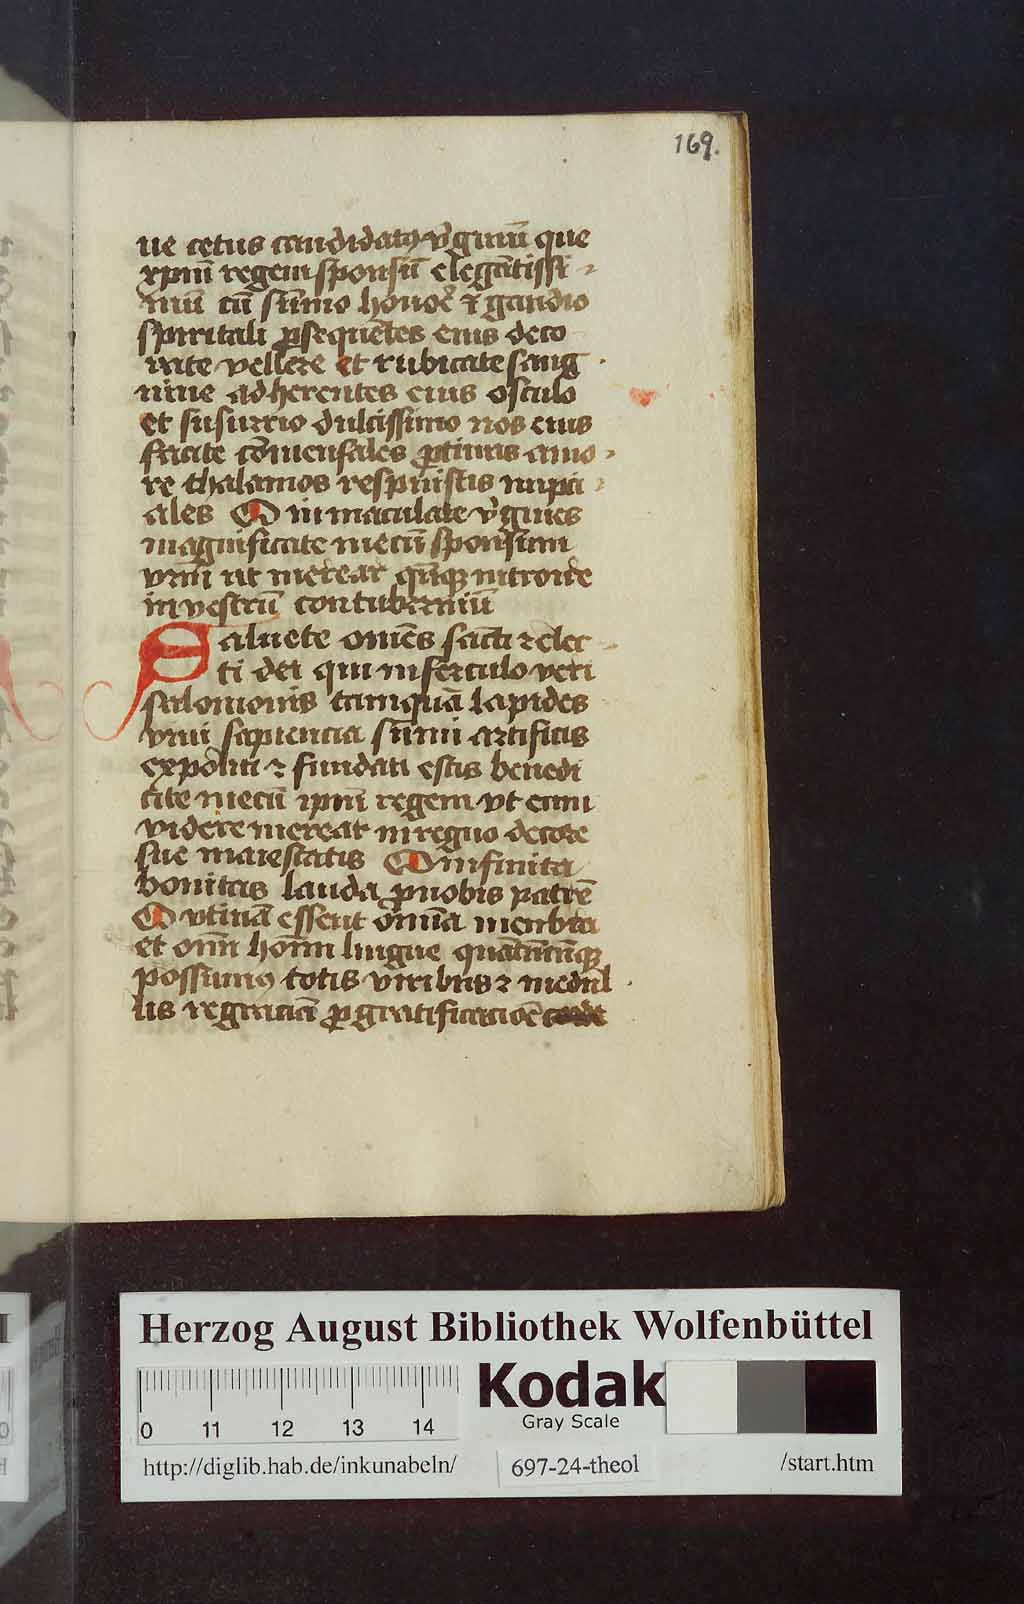 169.
ue cetus candidatꝰ v̾ginū que
xpm̄ regem sponsū elegātissi
mū cū sūmo honoē ⁊ gaudio
spiritali ꝓsequētes eius deco
rate vellere et rubicate sang
nine adherentes eius osculo
et susurrio dulcissimo nos eius
facite cōmensales ꝓtinus amo
re thalamos respuistis nupci
ales O inmaculate v̾gines
magnificate mecū sponsum
vrm̄ ut merear introire
in vestrū contuberniū
Saluete om̄es sācti ⁊ elec
ti dei qui in ferculo veri
salomonis tamquā lapides
viui sapiencia sūmi artificis
expoliti ⁊ fundati estis benedi
cite mecū xpm̄ regem vt eum
videre merear in regno decore
sue maiestatis O infinita
bonitas lauda ꝓ nobis patrē
O vtinā essent om̄ia menbra
et om̄i hom̄ lingue quātūcūqꝫ
possumꝰ totis viribus ⁊ medul
lis regraciā ꝓ gratificacioē
Herzog August Bibliothek Wolfenbüttel
0 11 12 13 14
Kodak
Gray Scale
http://diglib.hab.de/inkunabeln/ 697-24-theol /start.htm